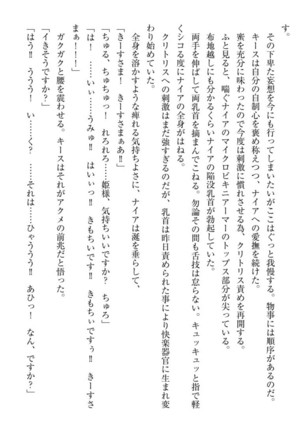 す。
その下卑た妄想を今にも行ってしまいたいがここはぐっと我慢する。物事には順序があるのだ。
キースは自分の自制心を褒め称えつつ、ナイアへの愛撫を続けた。
蜜を充分に味わったので今度は刺激に慣れさせるべく、クリトリス責めを再開する。
ふと見ると、喘ぐナイアのマイクロビキニアーマーのトップス部分が尖っている。
布地越しにも分かるくらいナイアの陥没乳首が勃起していた。
両手を伸ばして両乳首を摘まんでこねる。勿論その間も舌技は怠らない。キュッキュッと指で軽
くシコる度にナイアの全身がはねる。
クリトリスへの刺激はまだ強すぎるのだが、乳首は昨日責められた事により快楽器官に生まれ変
わり始めていた。
全身を溶かすような痺れる気持ちよさに、ナイアは涎を垂らして、
「きーすさま！　きーすさまぁあ‼」
「ちゅる、ちゅちゅっ！　れろれろ……姫様、気持ちいいですか？　ちゅろ」
「は！　……いぃ……うみゅ‼　はいぃっ‼　きもちいです‼　きもちいですぅ‼　きーすさ
まぁ‼」
ガクガクと腰を震わせる。キースはそれがアクメの前兆だと悟った。
「イきそうですか？」
「はう！　ううう！　い……く？　……それは……ひゃううう‼　あひっ！　なん、ですか？」